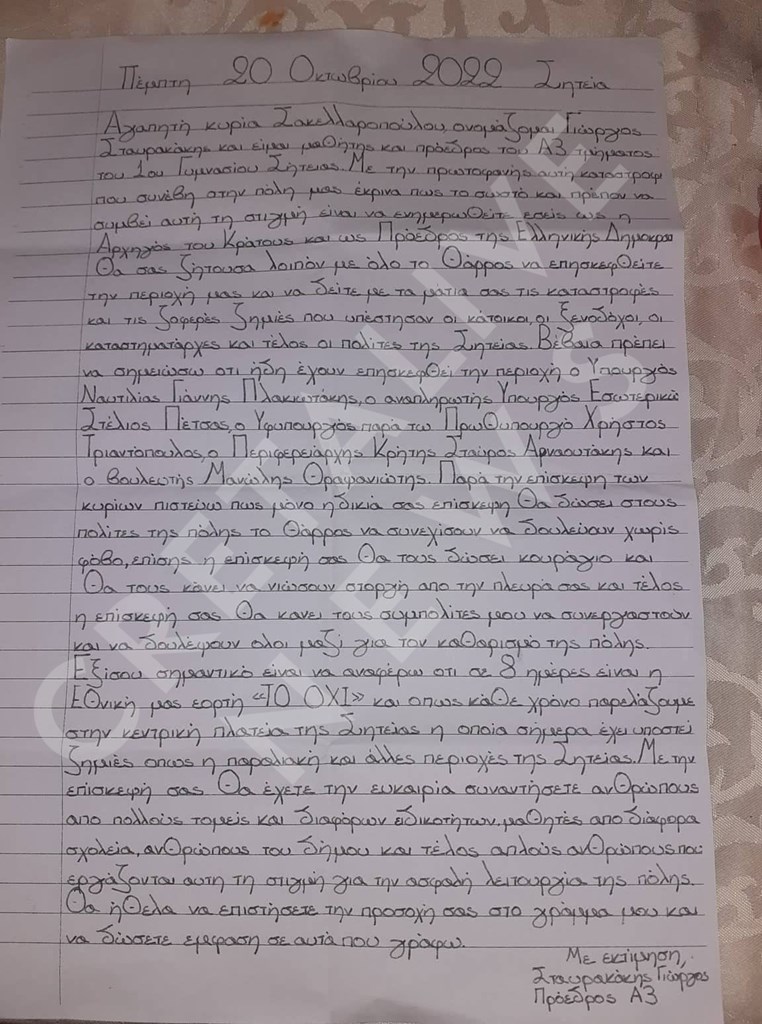 Πέμπτη 20 Οκτωβρίου 2022 Σητεία
Αγαπητή κυρία Σακελλαροπούλου, ονομάζομαι Γιώργος
Σταυρακάκης και είμαι μαθητής και πρόεδρος του Α3 τμήματος
του 1ου Γυμνασίου Σητείας. Με την πρωτοφανής αυτή καταστροφή
που συνέβη στην πόλη μας έκρινα πως το σωστό και πρέπον να
συμβεί αυτή τη στιγμή είναι να ενημερωθείτε εσείς ως η
Αρχηγός του Κράτους και ως Πρόεδρος της Ελληνικής Δημοκρα
Θα σας ζητούσα λοιπόν με όλο το Θάρρος να επησκεφθείτε
την περιοχή μας και να δείτε με τα μάτια σας τις καταστροφές
και τις ζοφερές ζημιές που υπέστησαν οι κάτοικοι, οι ξενοδόχοι, οι
καταστηματάρχες και τέλος οι πολίτες της Σητείας. Βέβαια πρέπει
να σημειώσω οτι ήδη έχουν επησκεφθεί την περιοχή ο Υπουργός
Ναυτιλίας Γιάννης Πλακιωτάκης, ο αναπληρωτής Υπουργός Εσωτερικών
Στέλιος Πέτσας, ο Υφυπουργός παρά τω Πρωθυπουργό Χρήστος
Τριαντόπουλος, ο Περιφερειάρχης Κρήτης Σταύρος Αρναουτάκης και
ο βουλευτής Μανώλης Θραψανιώτης. Παρά την επίσκεψη των
κυρίων πιστεύω πως μόνο η δικιά σας επίσκεψη Θα δώσει στους
πολίτες της πόλης το Θάρρος να συνεχίσουν να δουλεύουν χωρίς
φόβο, επίσης η επισκεψή σας Θα τους δώσει κουράγιο και
Θα τους κάνει να νιώσουν στοργή απο την πλευρά σας και τέλος
η επισκεψή σας Θα κανει τους συμπολίτες μου να συνεργαστούν
και να δουλέψουν ολοι μαζί για τον καθαρισμό της πόλης.
Εξίσου σημαντικό είναι να αναφέρω οτι σε 8 ημέρες είναι η
Εθνική μας εορτή «ΤΟ ΟΧΙ» και οπως κάθε χρόνο παρελάζουμε
στην κεντρική πλατεία της Σητείας η οποία σήμερα έχει υποστεί
ζημιές οπως η παραλιακή και άλλες περιοχές της Σητείας. Με την
επισκεψή σας Θα έχετε την ευκαιρία συναντήσετε ανθρώπους
απο πολλούς τομείς και διαφόρων ειδικοτήτων, μαθητές απο διάφορα
σχολεία, ανθρώπους του δήμου και τέλος απλούς ανθρώπους που
εργάζονται αυτη τη στιγμή για την ασφαλή λειτουργία της πόλης.
Θα ήθελα να επιστήσετε την προσοχή σας στο γράμμα μου και
να δώσετε εμφαση σε αυτά που γράφω.
Με εκτίμηση,
Σταυρακάκης Γιώργος
Πρόεδρος Α3
CRETALIVE
NEWS